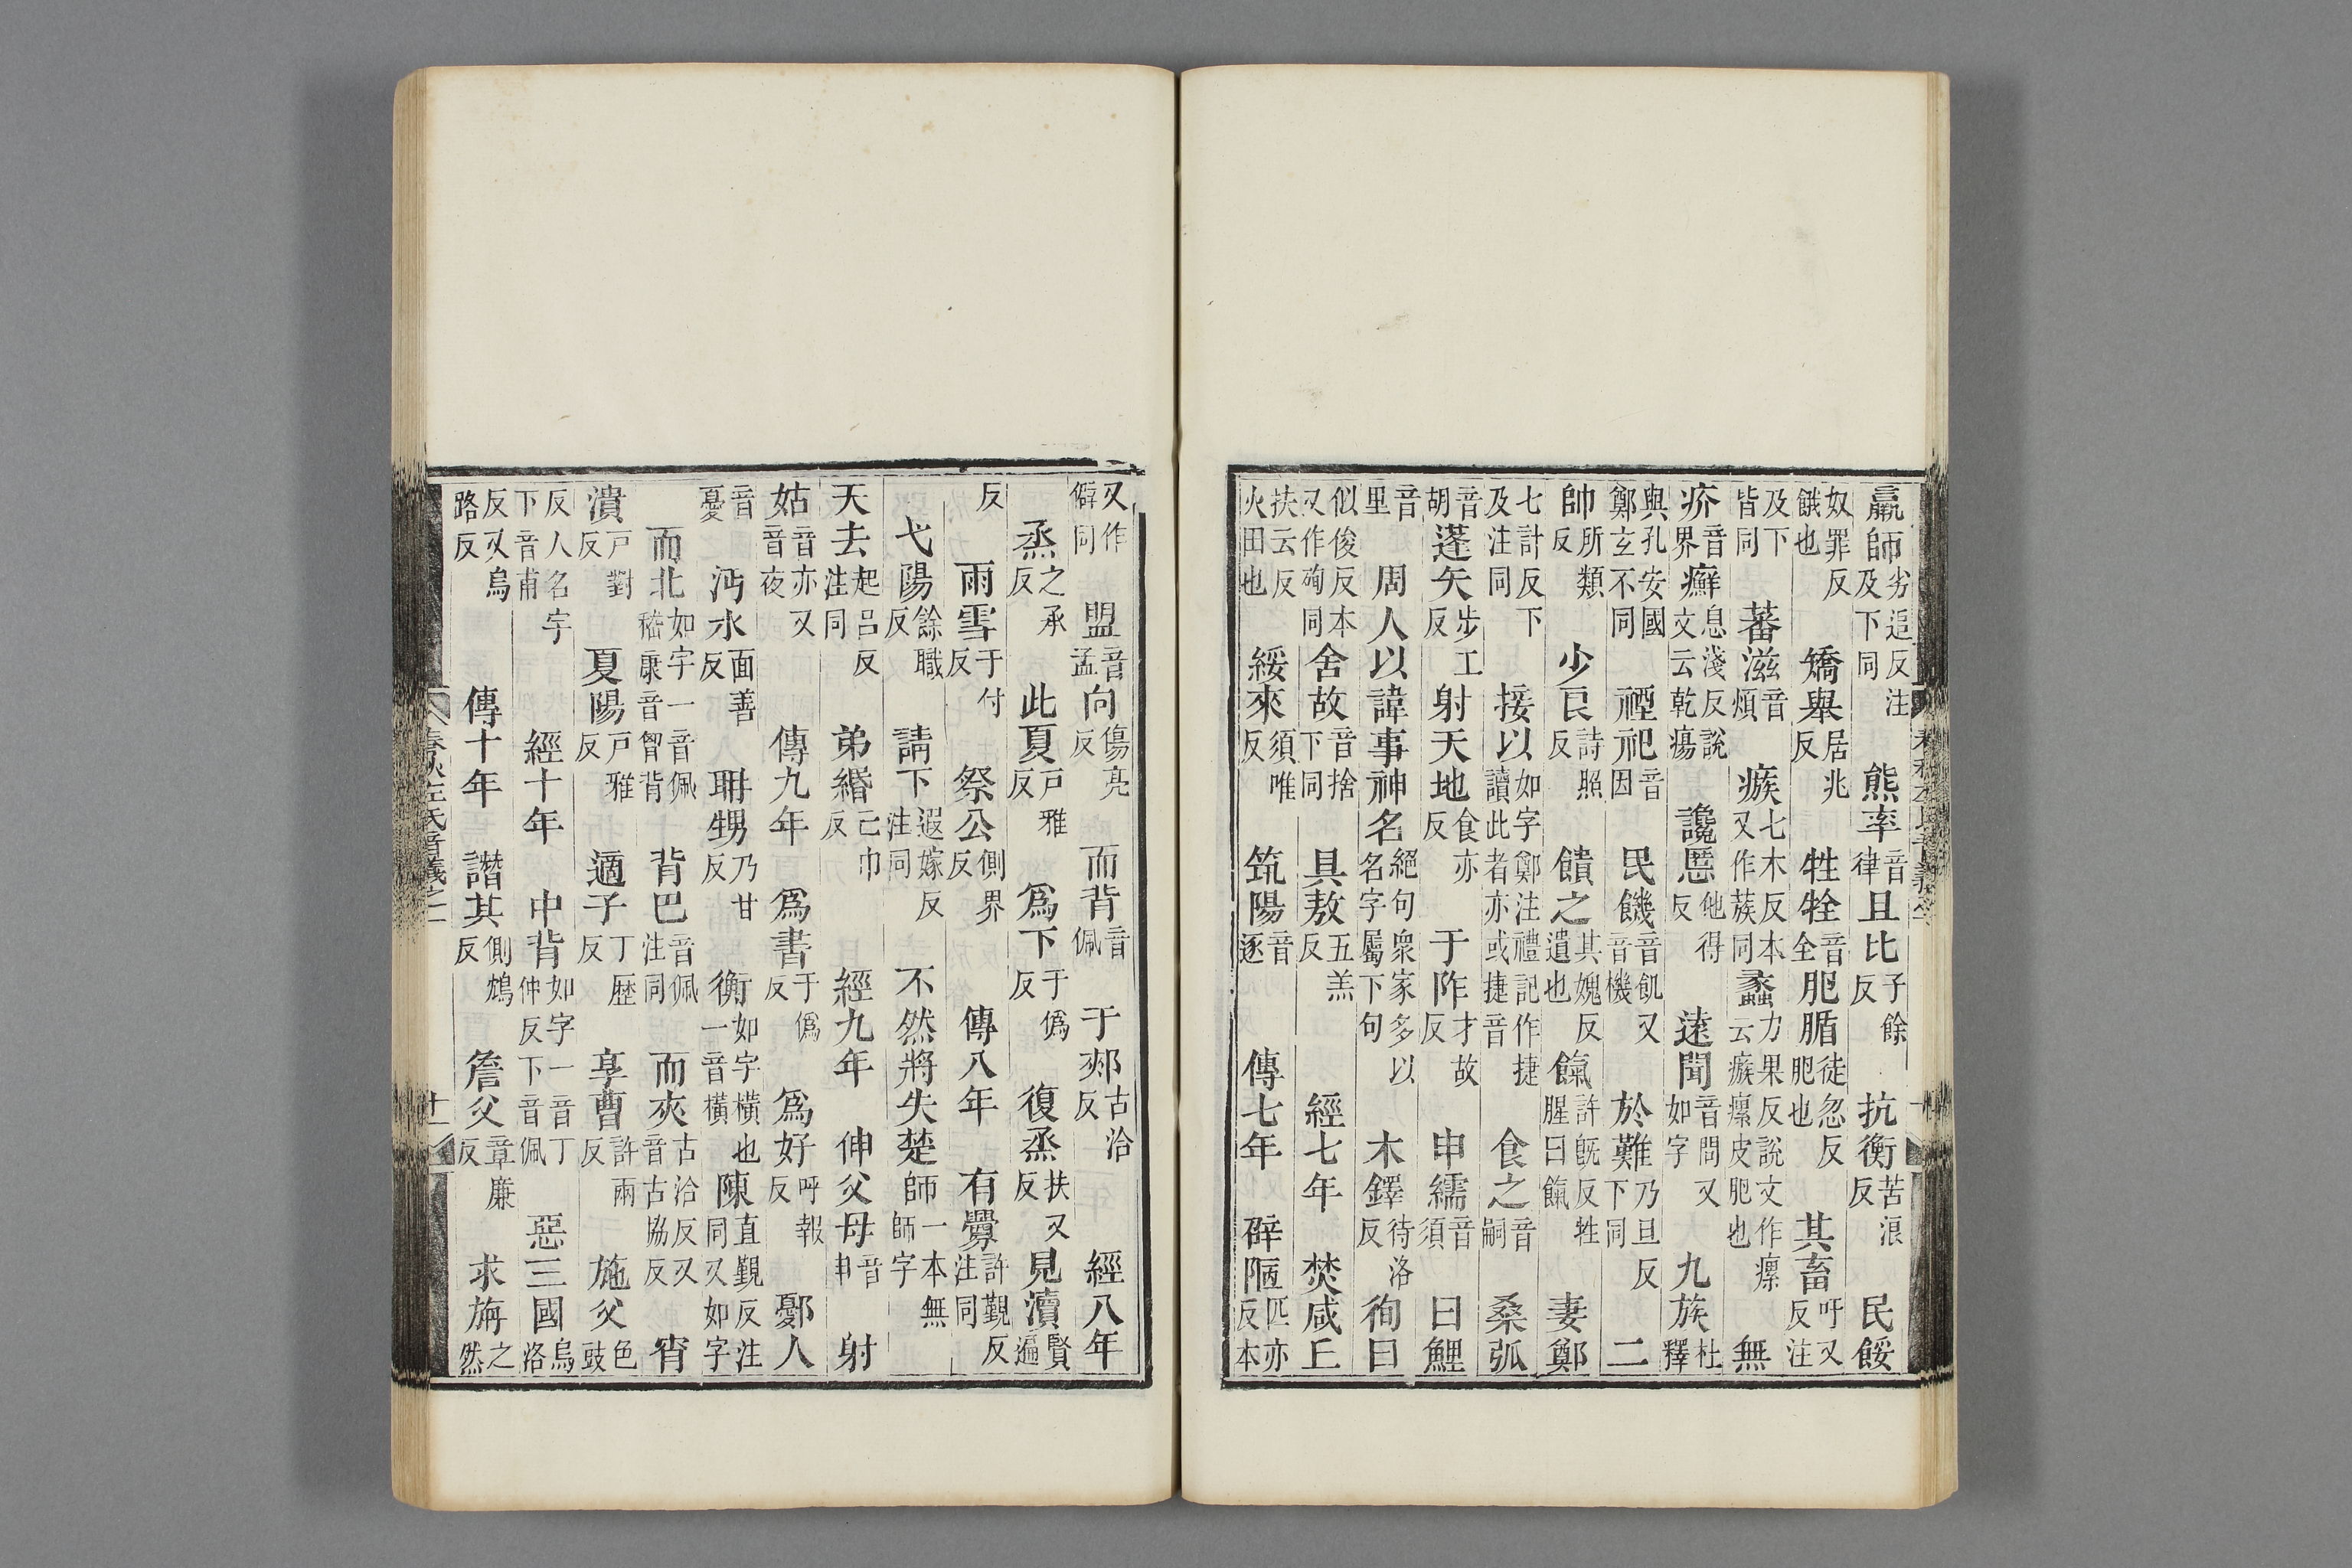 羸師劣追反注及下同熊率音律且比子餘反抗衡苦浪反民餒
奴罪反餓也矯舉居兆反牲牷音全肥腯徒忽反肥也其畜吁又反注
及下皆同蕃滋音煩瘯七木反本又作蔟同蠡力果反說文作瘰云瘯瘰皮肥也無
疥音界癬息淺反說文云乾瘍讒慝他得反遠聞音問又如字九族杜釋
與孔安國鄭玄不同禋祀音因民饑音飢又音機於難乃旦反下同二
帥所類反少良詩照反饋之其媿反遺也餼許旣反牲腥曰餼妻鄭
七計反下及注同接以如字鄭注禮記作捷讀此者亦或捷音食之音嗣桑弧
音胡蓬矢步工反射天地食亦反于阼才故反申繻音須曰鯉
音里周人以諱事神名絕句衆家多以名字屬下句木鐸待洛反徇曰
似俊反本又作殉同舍故音捨下同具敖五羔反經七年焚咸丘
扶云反火田也綏來須唯反筑陽音逐傳七年辟陋匹亦反本
又作僻同盟音孟向傷亮反而背音佩于郟古洽反經八年
烝之承反此夏戶雅反爲下于僞反復烝扶又反見瀆賢遍
反雨雪于付反祭公側界反傳八年有釁許覲反注同
弋陽餘職反請下遐嫁反注同不然將失楚師一本無師字
天去起呂反注同弟緡亡巾反經九年伸父母音申射
姑音亦又音夜傳九年爲書于僞反爲好呼報反鄾人
音憂沔水面善反聃甥乃甘反衡如字橫也一音橫陳直覲反注同又如字
而北如字一音佩嵇康音胷背背巴音佩注同而夾古洽反又音古協反宵
潰戶對反夏陽戶雅反適子丁歷反享曹許兩反施父色豉
反人名字下音甫經十年中背如字一音丁仲反下音佩惡三國烏洛
反又烏路反傳十年譖其側鴆反詹父章廉反求旃之然
春秋左氏音義之一
十一